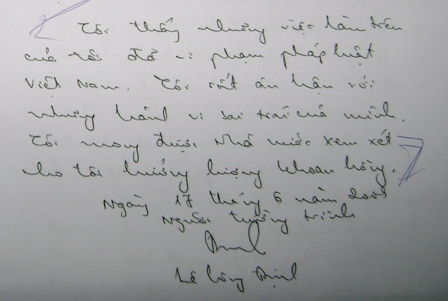 Tôi thấy những việc làm trên
của tôi đã vi phạm pháp luật
Việt Nam. Tôi rất ân hận với
những hành vi sai trái của mình.
Tôi mong được Nhà nước xem xét
cho tôi hưởng lượng khoan hồng.
Ngày 17 tháng 6 năm 2009
Người tường trình
Lê Công Định